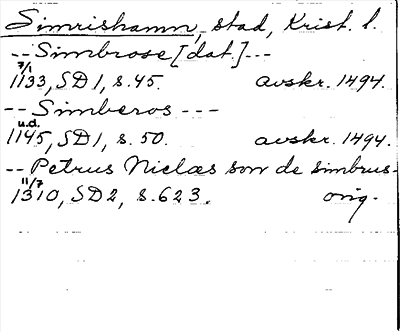 Simrishamn, stad, Krist. l.
-- Simbrose [dat.] --
7/1 1133, SD1, s.45. avskr. 1494.
-- Simberos ---
u.d. 1145, SD1, s. 50. avskr. 1494.
-- Petrus Niclæs son de simbrus-
11/7 1310, SD2, s.623. orig.